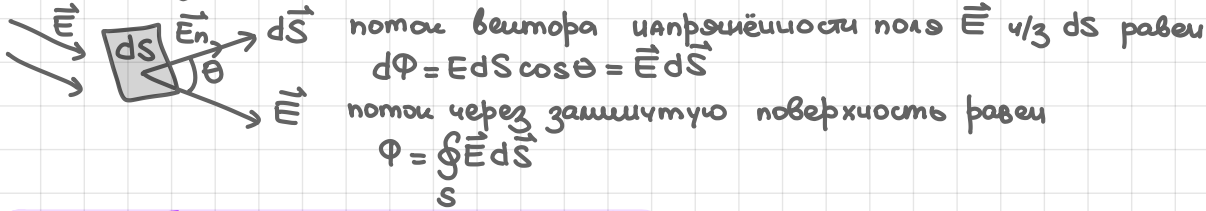 E⃗ dS E⃗n dS⃗ θ E⃗
поток вектора напряжённости поля E⃗ ч/з dS равен
dФ = EdScosθ = E⃗dS⃗
поток через замкнутую поверхность равен
Ф = ∮E⃗dS⃗
S